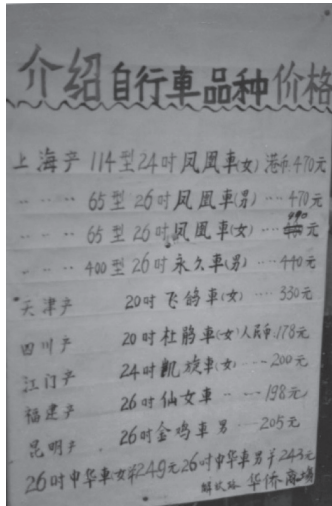 介绍自行車品种价格
上海产 114型24吋凤凰車(女) 港币.470元
‥ ‥ ‥ 65型 26吋凤凰車(男) ‥‥470元
‥ ‥ ‥ 65型 26吋凤凰車(女) ‥‥490元
‥ ‥ ‥ 400型26吋永久車(男) ‥‥440元
天津产 20吋飞鸽車(女) ‥‥330元
四川产 20吋杜鹃車(女)人民币.178元
江门产 24吋凯旋車(女) ‥‥200元
福建产 26吋仙女車 ‥ ‥ ‥198元
昆明产 26吋金鸡車 男 ‥‥205元
26吋中华車女平249元26吋中华車男平243元
解放路 华侨商场